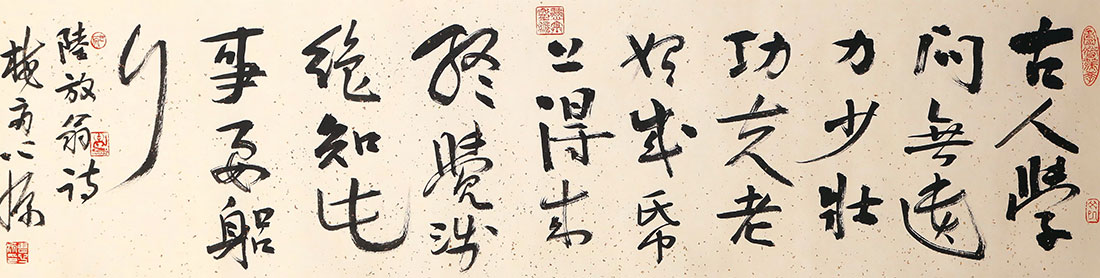 古人學
問無遺
力少壯
功夫老
始成帋
上得來
終覺淺
絕知此
事要躬
行
陸放翁詩